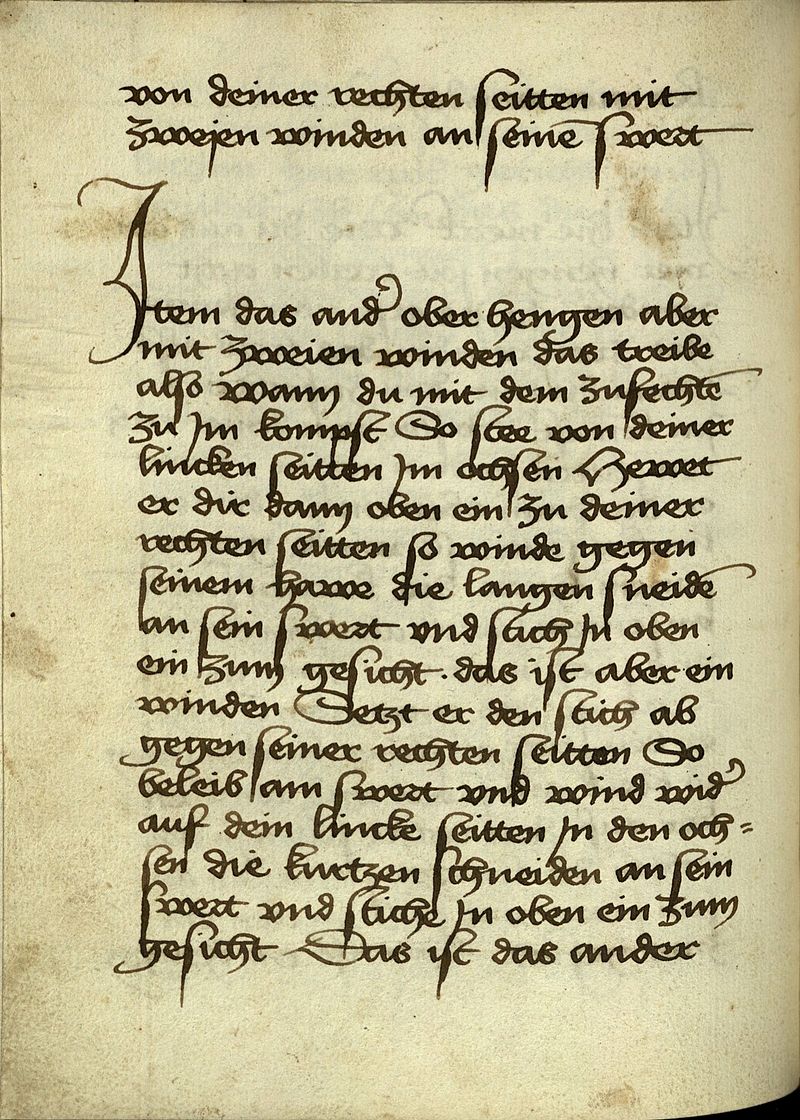 von deiner rechten seitten mit
zweyen winden an seinē swert
Item das and͛ ober hengen aber
mit zweien winden das treibe
also wann du mit dem zufechtē
zu Im kompst So stee von deiner
lincken seitten Im ochsen Hewet
er dir dann oben ein zu deiner
rechten seitten so winde gegen
seinem hawe die langen sneidē
an sein swert vnd stich In oben
ein zum gesicht · das ist aber ein
winden Setzt er den stich ab
gegen seiner rechten seitten So
beleib am swert vnd wind wid͛
auf dein lincke seitten In den och=
sen die kurtzen schneiden an sein
swert vnd stiche In oben ein zum
gesicht Das ist das ander